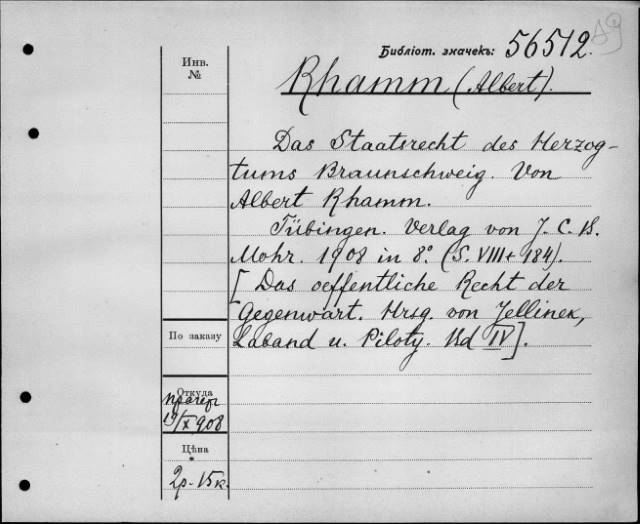 Библіот. значекъ: 56512.
Инв.
№
Rhamm (Albert).
Das Staatsrecht des Herzog-
tums Braunschweig. Von
Albert Rhamm.
Tübingen. Verlag von J. C. B.
Mohr. 1908 in 8º. (S. VIII + 184).
[Das oeffentliche Recht der
Gegenwart. Hrsg. von Jellinek,
Laband u. Piloty. Bd IV].
По заказу
Откуда
19/X 908
Цѣна
2р. 15к.